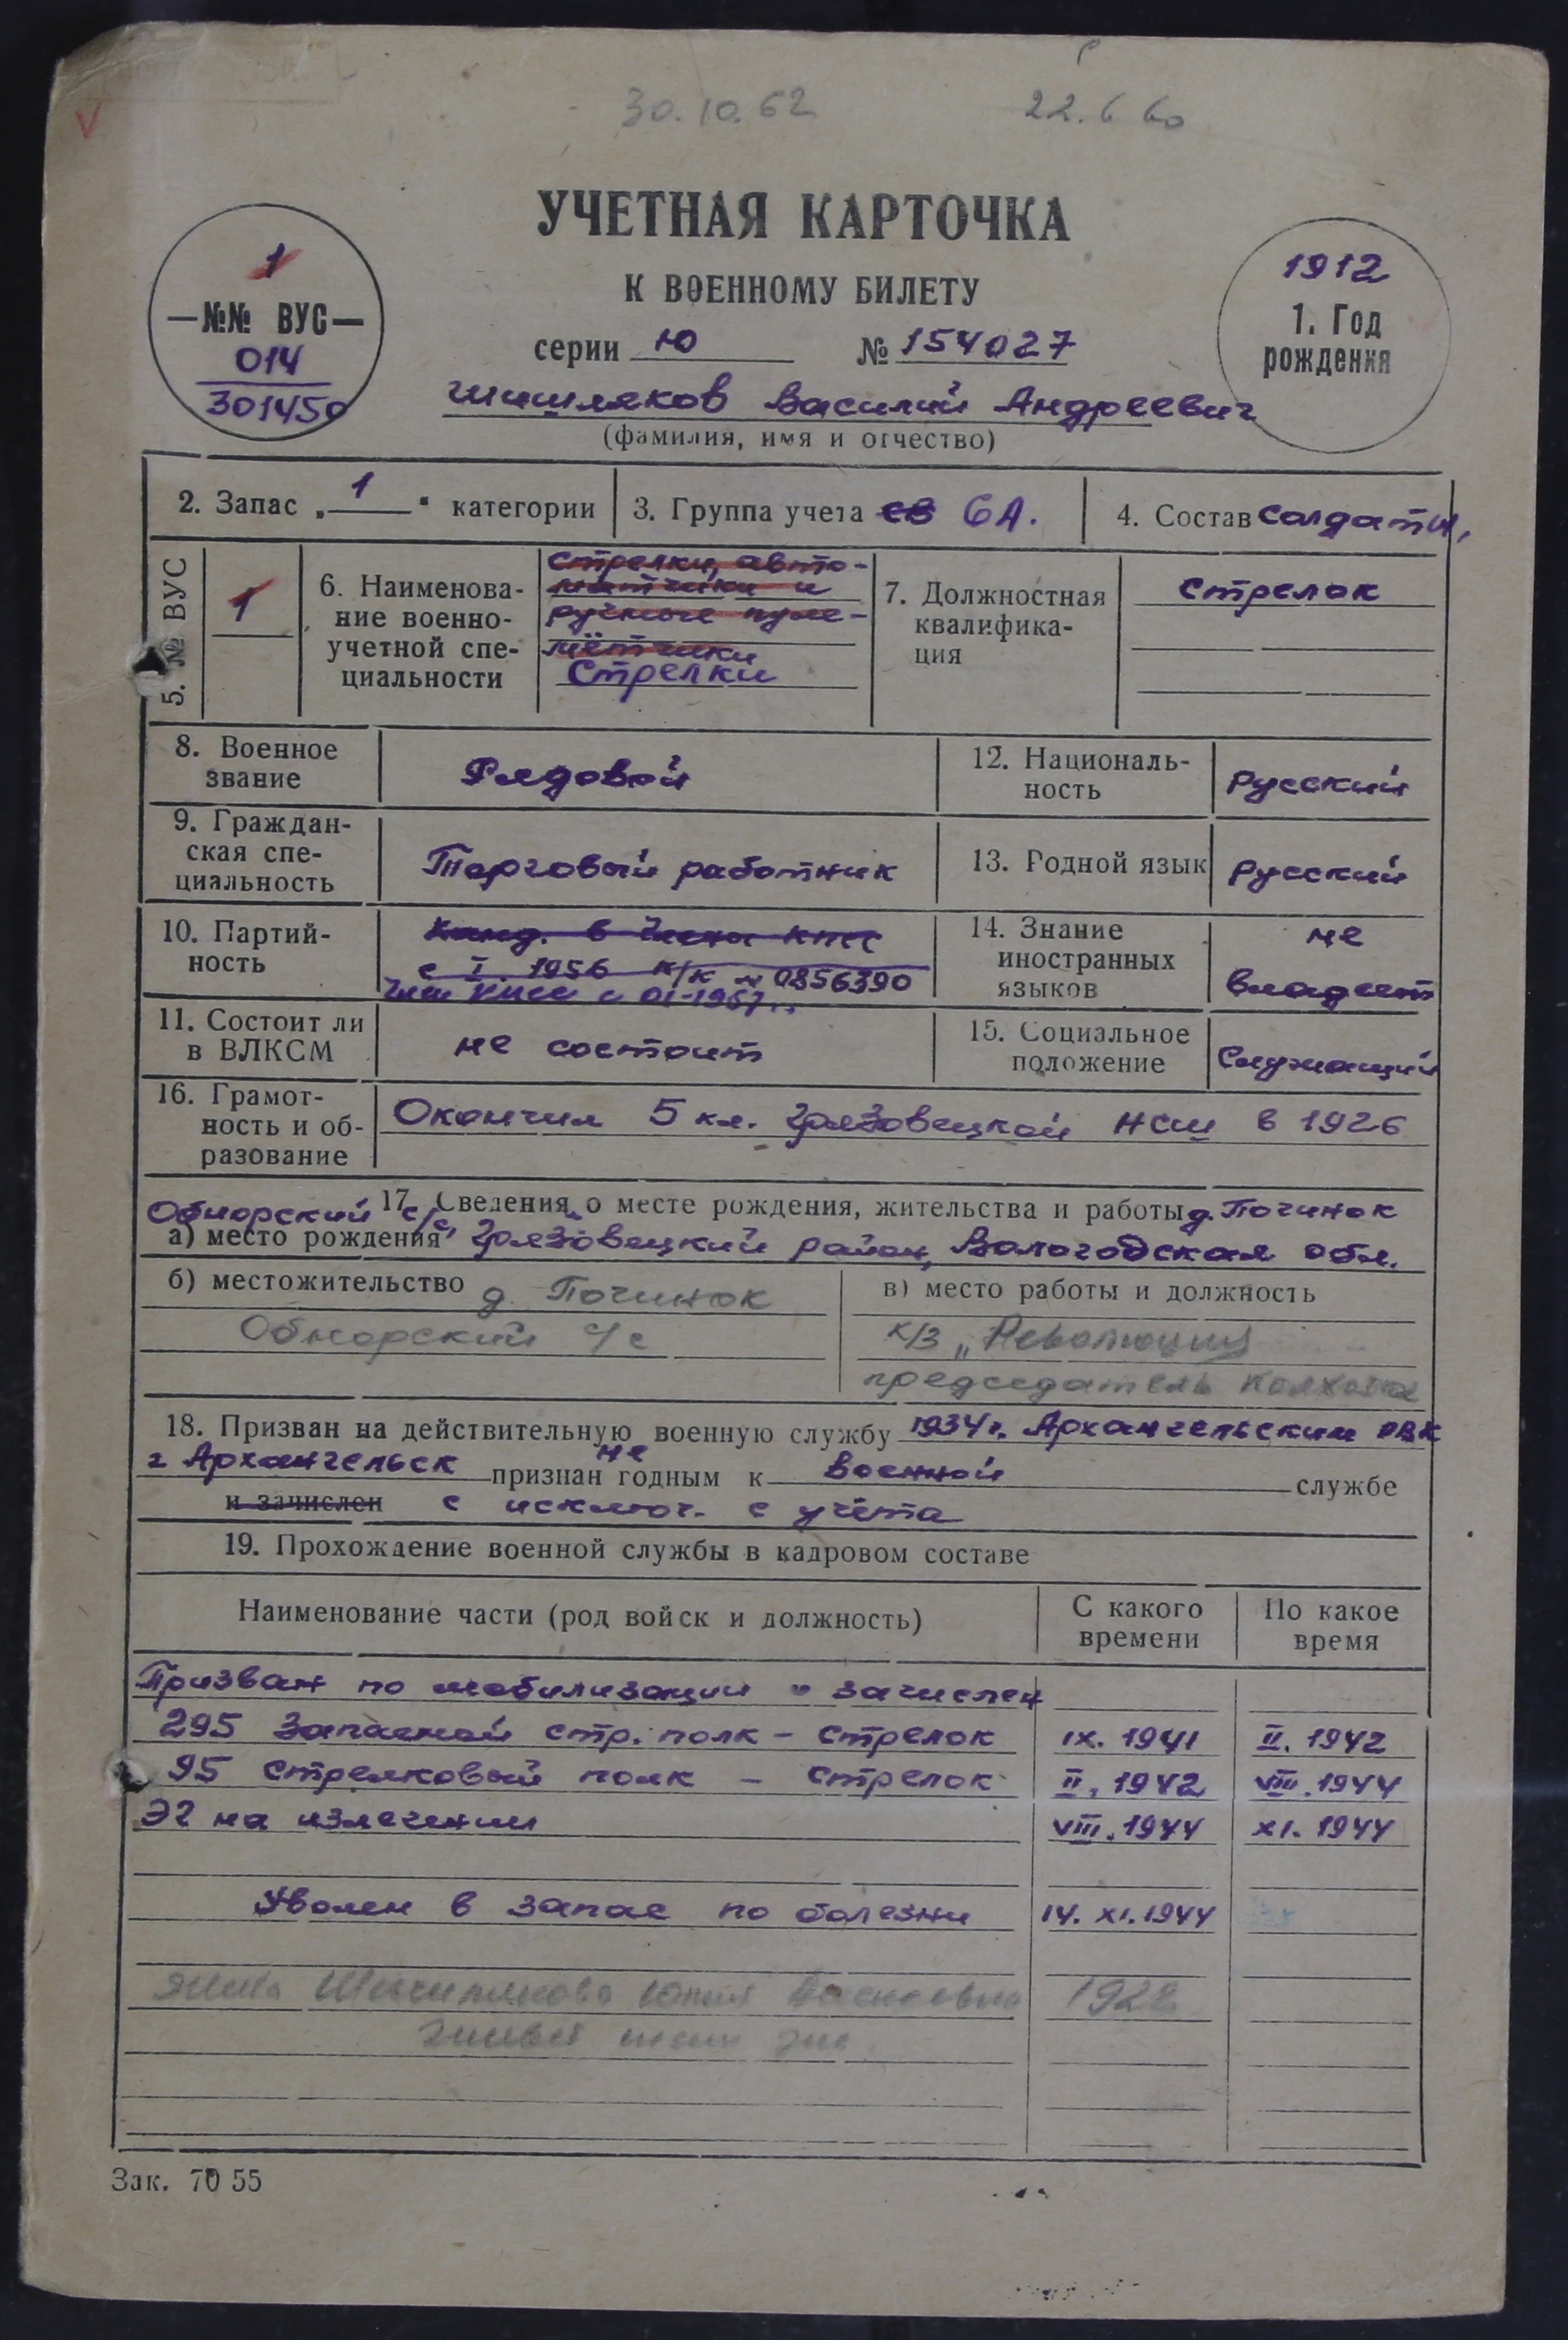 30.10.62 22.6 60
УЧЕТНАЯ КАРТОЧКА
К ВОЕННОМУ БИЛЕТУ
серии Ю № 154027
Шишляков Василий Андреевич
(фамилия, имя и отчество)
1
—№№ ВУС—
014
301450
1912
1. Год
рождения
2. Запас „1“ категории
3. Группа учета СВ 6А.
4. Состав солдаты,
5. № ВУС
1
6. Наименова-
ние военно-
учетной спе-
циальности
стрелки, авто-
матчики и
ручные пуле-
мётчики
Стрелки
7. Должностная
квалифика-
ция
стрелок
8. Военное
звание
Рядовой
12. Националь-
ность
русский
9. Граждан-
ская спе-
циальность
Торговый работник
13. Родной язык
русский
10. Партий-
ность
Канд. в члены КПСС
с I 1956 к/к № 0856390
Член КПСС с 01-1957 г.
14. Знание
иностранных
языков
не
владеет
11. Состоит ли
в ВЛКСМ
не состоит
15. Социальное
положение
Служащий
16. Грамот-
ность и об-
разование
Окончил 5 кл. Грязовецкой НСШ в 1926
17. Сведения о месте рождения, жительства и работы д. Починок
Обнорский с/с
а) место рождения Грязовецкий район, Вологодская обл.
б) местожительство д. Починок
Обнорский с/с
в) место работы и должность
к/з „Революция
председатель колхоза
18. Призван на действительную военную службу 1934г. Архангельским РВК
г Архангельск признан не годным к военной службе
и зачислен с исключ. с учёта
19. Прохождение военной службы в кадровом составе
Наименование части (род войск и должность)
С какого
времени
По какое
время
Призван по мобилизации и зачислен
295 Запасной стр. полк – стрелок IX. 1941 II. 1942
95 стрелковый полк – стрелок II. 1942 VIII. 1944
ЭГ на излечении VIII. 1944 XI. 1944
Уволен в запас по болезни 14. XI. 1944
жена Шишлякова 1922
Зак. 7055